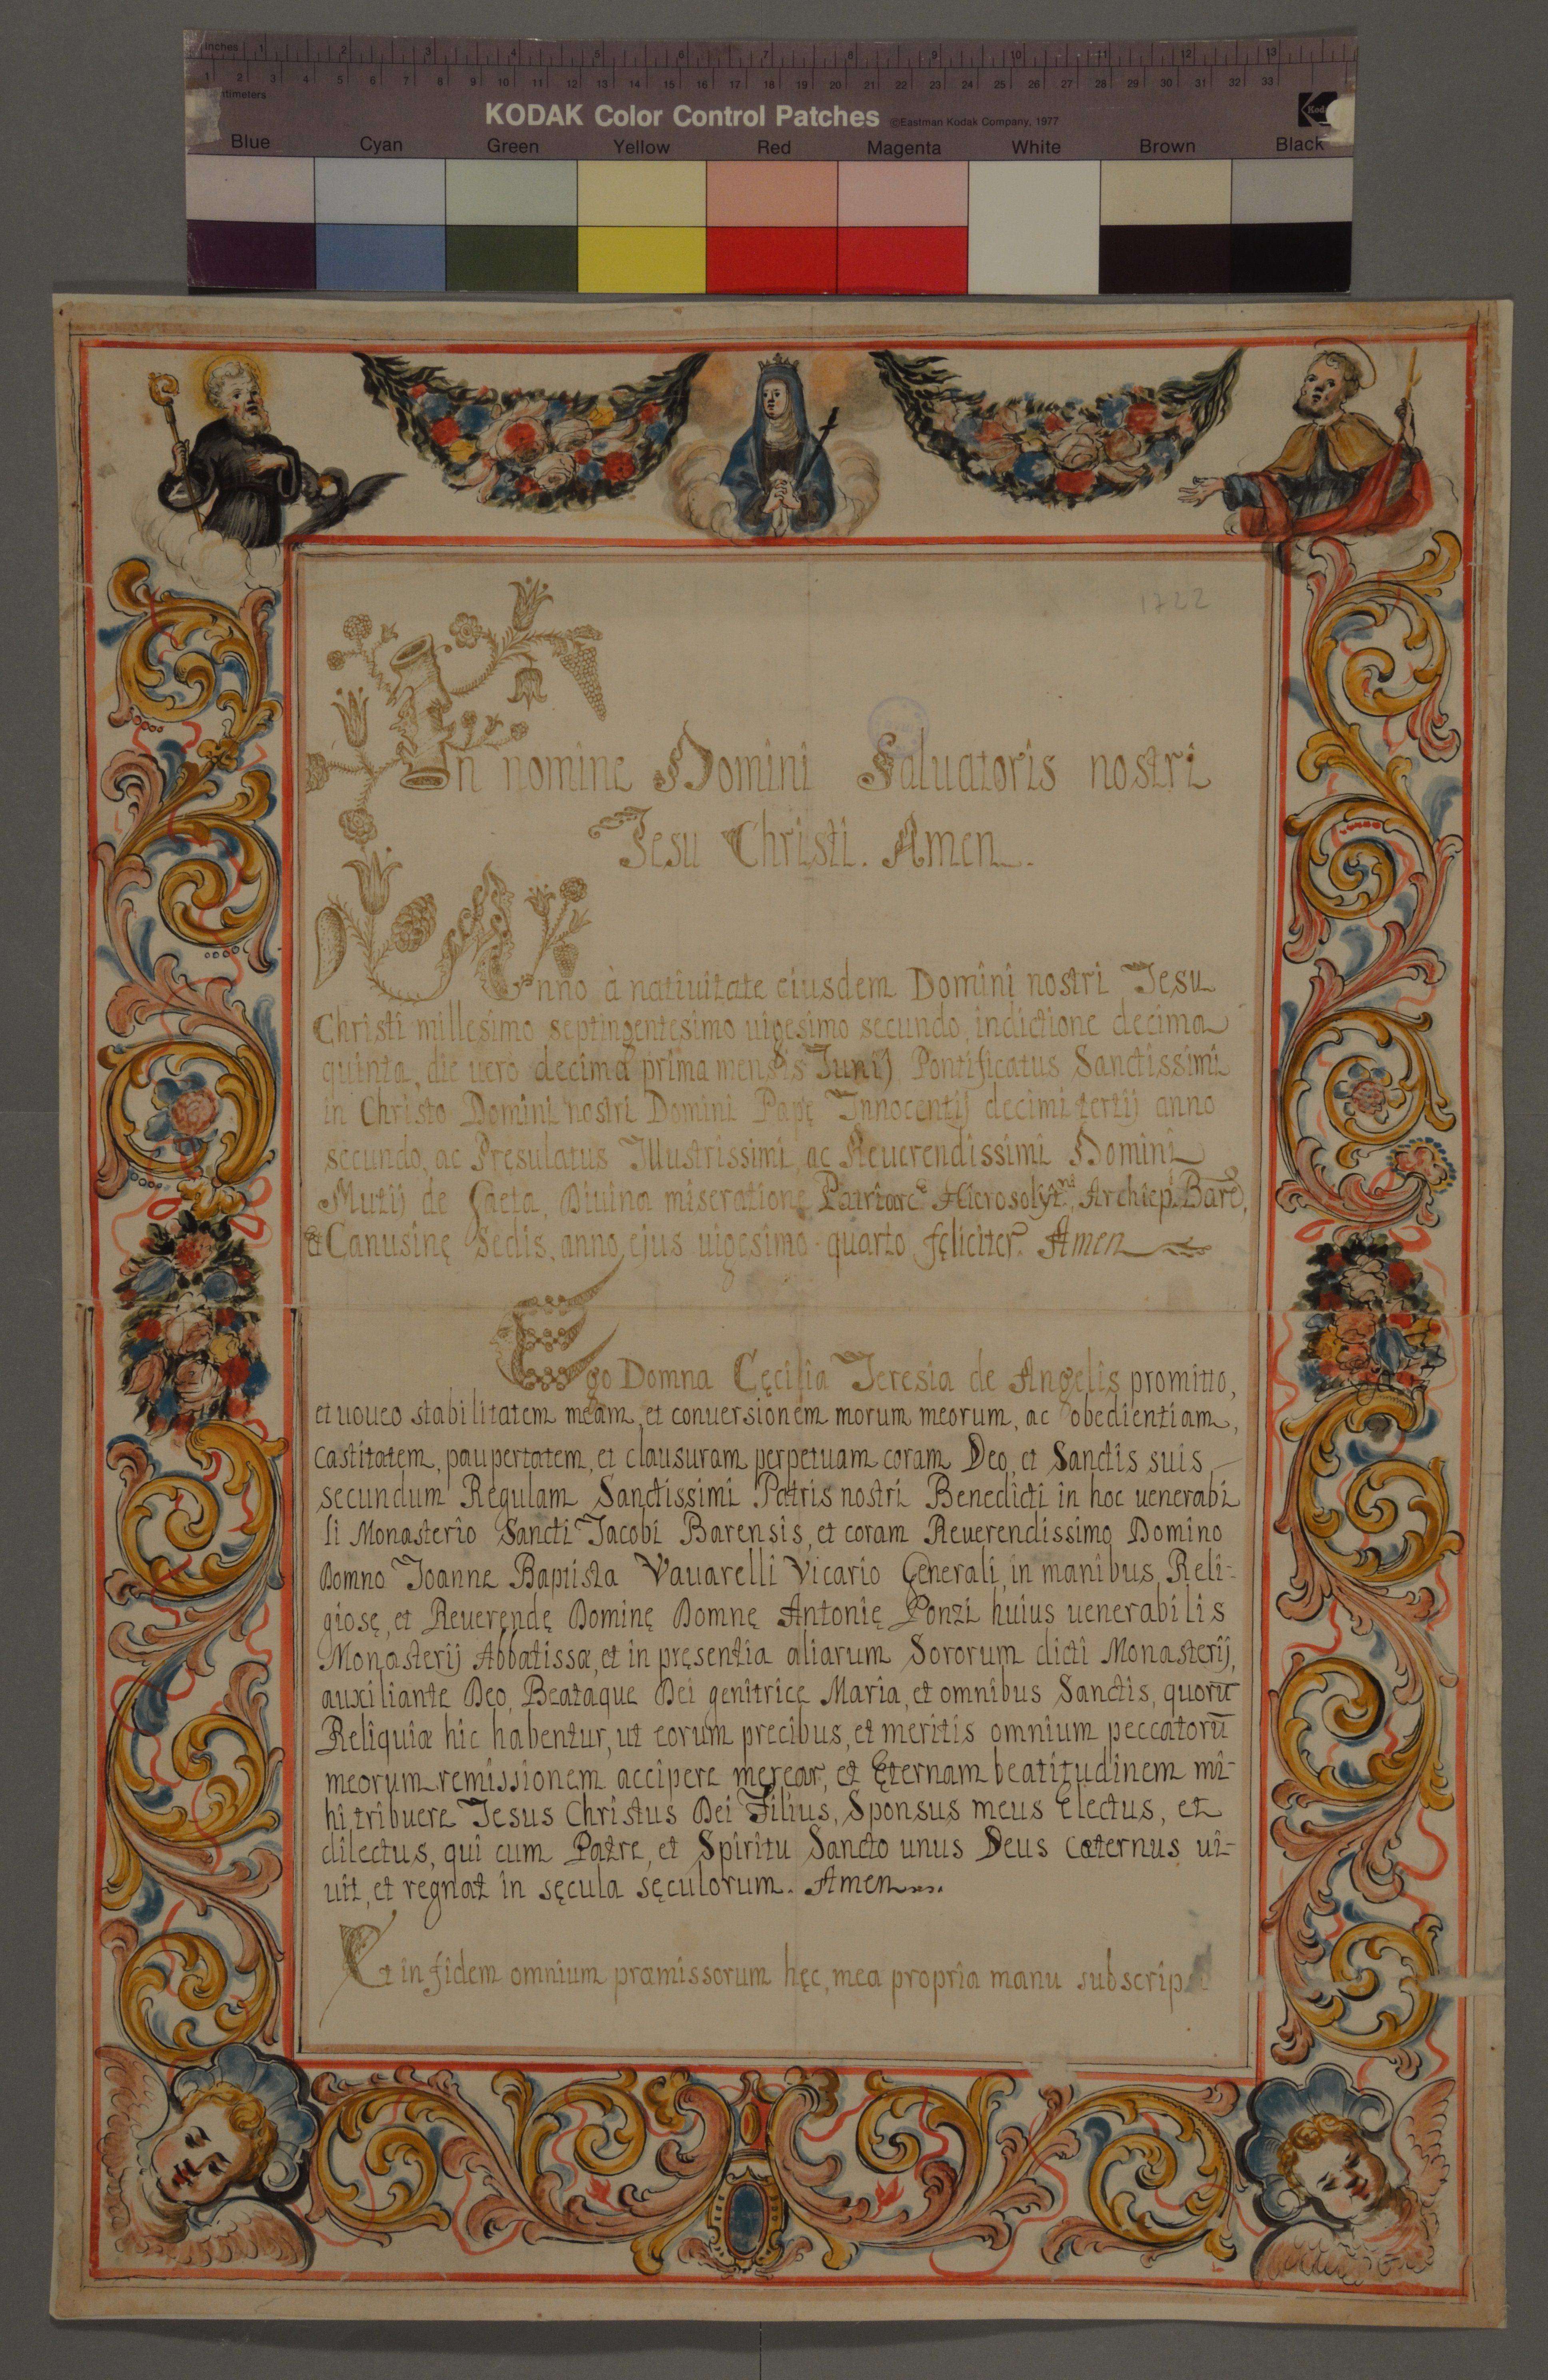 inches 1 2 3 4 5 6 7 8 9 10 11 12 13
1 2 3 4 5 6 7 8 9 10 11 12 13 14 15 16 17 18 19 20 21 22 23 24 25 26 27 28 29 30 31 32 33
timeters
KODAK Color Control Patches ©Eastman Kodak Company, 1977
Kodak
Blue Cyan Green Yellow Red Magenta White Brown Black
1722
In nomine Domini Saluatoris nostri
Jesu Christi. Amen.
Anno à natiuitate eiusdem Domini nostri Jesu
Christi millesimo septingentesimo uigesimo secundo, indictione decima
quinta, die uerò decima prima mensis Junij Pontificatus Sanctissimi
in Christo Domini nostri Domini Papę Innocentij decimi tertij anno
secundo, ac Presulatus Illustrissimi, ac Reuerendissimi Domini
Mutij de Gaeta, Diuina miseratione Patriarc Hierosolyt, Archiep. Bare,
et Canusinę Sedis, anno ejus uigesimo quarto fęliciter. Amen
Ego Domna Cęcilia Teresia de Angelis promitto,
et uoueo stabilitatem meam, et conuersionem morum meorum, ac obedientiam,
castitatem, paupertatem, et clausuram perpetuam coram Deo, et Sanctis suis
secundum Regulam Sanctissimi Patris nostri Benedicti in hoc uenerabi
li Monasterio Sancti Jacobi Barensis, et coram Reuerendissimo Domino
Domno Joanne Baptista Vauarelli Vicario Generali, in manibus Reli-
giosę, et Reuerendę Dominę Domnę Antonię Ponzi huius uenerabilis
Monasterij Abbatissa, et in pręsentia aliarum Sororum dicti Monasterij,
auxiliante Deo, Beataque Dei genitrice Maria, et omnibus Sanctis, quorū
Reliquiæ hic habentur, ut eorum precibus, et meritis omnium peccatorū
meorum remissionem accipere merear, et ęternam beatitudinem mi-
hi tribuere Jesus Christus Dei Filius, Sponsus meus Electus, et
dilectus, qui cum Patre, et Spiritu Sancto unus Deus cæternus ui-
uit, et regnat in sęcula sęculorum. Amen
Et in fidem omnium præmissorum hęc, mea propria manu subscrip